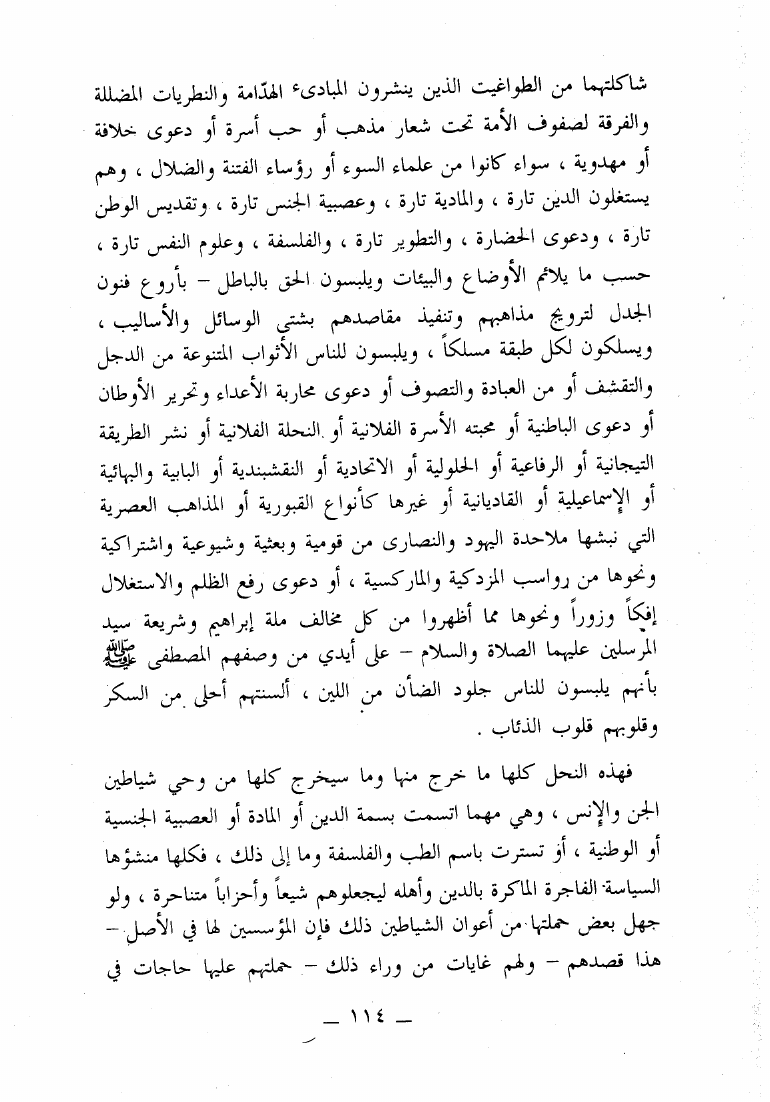 شاكلتهما من الطواغيت الذين ينشرون المبادىء الهدّامة والنطريات المضللة
والفرقة لصفوف الأمة تحت شعار مذهب أو حب أسرة أو دعوى خلافة
أو مهدوية ، سواء كانوا من علماء السوء أو رؤساء الفتنة والضلال ، وهم
يستغلون الدين تارة ، والمادية تارة ، وعصبية الجنس تارة ، وتقديس الوطن
تارة ، ودعوى الحضارة ، والتطوير تارة ، والفلسفة ، وعلوم النفس تارة ،
حسب ما يلائم الأوضاع والبيئات ويلبسون الحق بالباطل – بأروع فنون
الجدل لترويج مذاهبهم وتنفيذ مقاصدهم بشتى الوسائل والأساليب ،
ويسلكون لكل طبقة مسلكاً ، ويلبسون للناس الأثواب المتنوعة من الدجل
والتقشف أو من العبادة والتصوف أو دعوى محاربة الأعداء وتحرير الأوطان
أو دعوى الباطنية أو محبته الأسرة الفلانية أو النحلة الفلانية أو نشر الطريقة
التيجانية أو الرفاعية أو الحلولية أو الاتحادية أو النقشبندية أو البابية والبهائية
أو الإسماعيلية أو القاديانية أو غيرها كأنواع القبورية أو المذاهب العصرية
التي نبشها ملاحدة اليهود والنصارى من قومية وبعثية وشيوعية واشتراكية
ونحوها من رواسب المزدكية والماركسية ، أو دعوى رفع الظلم والاستغلال
إفكاً وزوراً ونحوها مما أظهروا من كل مخالف ملة إبراهيم وشريعة سيد
المرسلين عليهما الصلاة والسلام – على أيدي من وصفهم المصطفى ﷺ
بأنهم يلبسون للناس جلود الضأن من اللين ، ألسنتهم أحلى من السكر
وقلوبهم قلوب الذئاب .
فهذه النحل كلها ما خرج منها وما سيخرج كلها من وحي شياطين
الجن والإنس ، وهي مهما اتسمت بسمة الدين أو المادة أو العصبية الجنسية
أو الوطنية ، أو تسترت باسم الطب والفلسفة وما إلى ذلك ، فكلها منشؤها
السياسة الفاجرة الماكرة بالدين وأهله ليجعلوهم شيعاً وأحزاباً متناحرة ، ولو
جهل بعض حملتها من أعوان الشياطين ذلك فإن المؤسسين لها في الأصل –
هذا قصدهم – ولهم غايات من وراء ذلك – حملتهم عليها حاجات في
– ١١٤ –